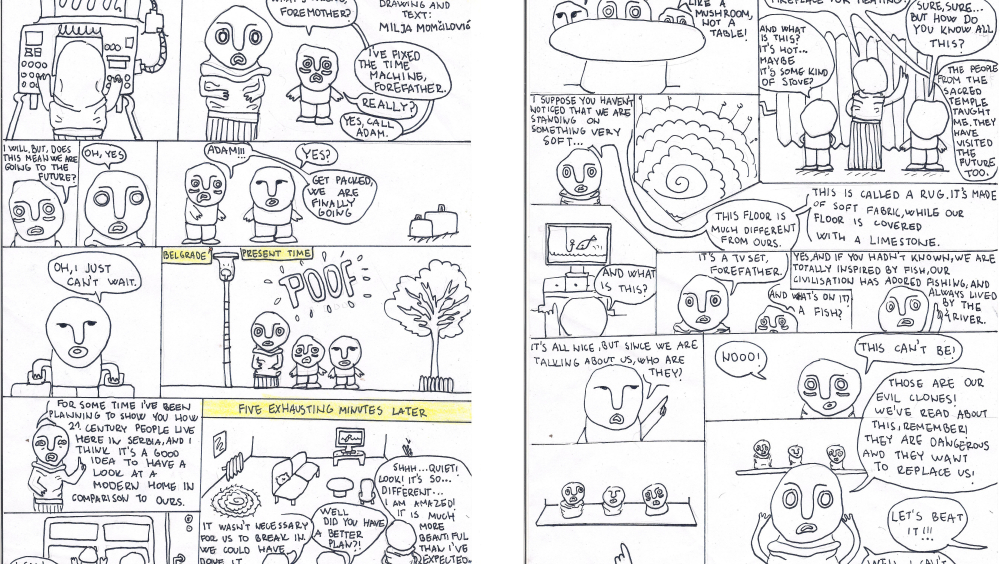 FOREMOTHER?
DRAWING AND
TEXT:
MILJA MOMČILOVIĆ
I'VE FIXED
THE TIME
MACHINE,
FOREFATHER.
REALLY?
YES, CALL
ADAM.
I WILL, BUT, DOES
THIS MEAN WE ARE
GOING TO THE
FUTURE?
OH, YES
ADAM!!!
YES?
GET PACKED,
WE ARE
FINALLY
GOING
OH, I JUST
CAN'T WAIT.
BELGRADE
PRESENT TIME
POOF
FOR SOME TIME I'VE BEEN
PLANNING TO SHOW YOU HOW
21. CENTURY PEOPLE LIVE
HERE IN SERBIA, AND I
THINK IT'S A GOOD
IDEA TO HAVE A
LOOK AT A
MODERN HOME IN
COMPARISON TO OURS.
FIVE EXHAUSTING MINUTES LATER
SHHH...QUIET!
LOOK! IT'S SO...
DIFFERENT...
I AM AMAZED!
IT IS MUCH
MORE
BEAUTIFUL
THAN I'VE
EXPECTED.
IT WASN'T NECESSARY
FOR US TO BREAK IN.
WE COULD HAVE
DONE IT
WELL
DID YOU HAVE
A BETTER
PLAN?!
LIKE A
MUSHROOM,
NOT A
TABLE!
AND WHAT
IS THIS?
IT'S HOT...
MAYBE
IT'S SOME KIND
OF STOVE?
FIREPLACE FOR HEATING!
SURE, SURE...
BUT HOW DO
YOU KNOW ALL
THIS?
THE PEOPLE
FROM THE
SACRED
TEMPLE
TAUGHT
ME. THEY
HAVE
VISITED
THE
FUTURE
TOO.
I SUPPOSE YOU HAVEN'T
NOTICED THAT WE ARE
STANDING ON
SOMETHING VERY
SOFT...
THIS FLOOR IS
MUCH DIFFERENT
FROM OURS.
THIS IS CALLED A RUG. IT'S MADE
OF SOFT FABRIC, WHILE OUR
FLOOR IS COVERED
WITH A LIMESTONE.
AND WHAT
IS THIS?
IT'S A TV SET,
FOREFATHER.
AND WHAT'S ON IT?
A FISH?
YES, AND IF YOU HADN'T KNOWN, WE ARE
TOTALLY INSPIRED BY FISH, OUR
CIVILISATION HAS ADORED FISHING, AND
ALWAYS LIVED
BY THE
RIVER.
IT'S ALL NICE, BUT SINCE WE ARE
TALKING ABOUT US, WHO ARE
THEY?
NOOO!
THIS CAN'T BE!
THOSE ARE OUR
EVIL CLONES!
WE'VE READ ABOUT
THIS, REMEMBER!
THEY ARE DANGEROUS
AND THEY WANT
TO REPLACE US!
LET'S BEAT
IT!!!